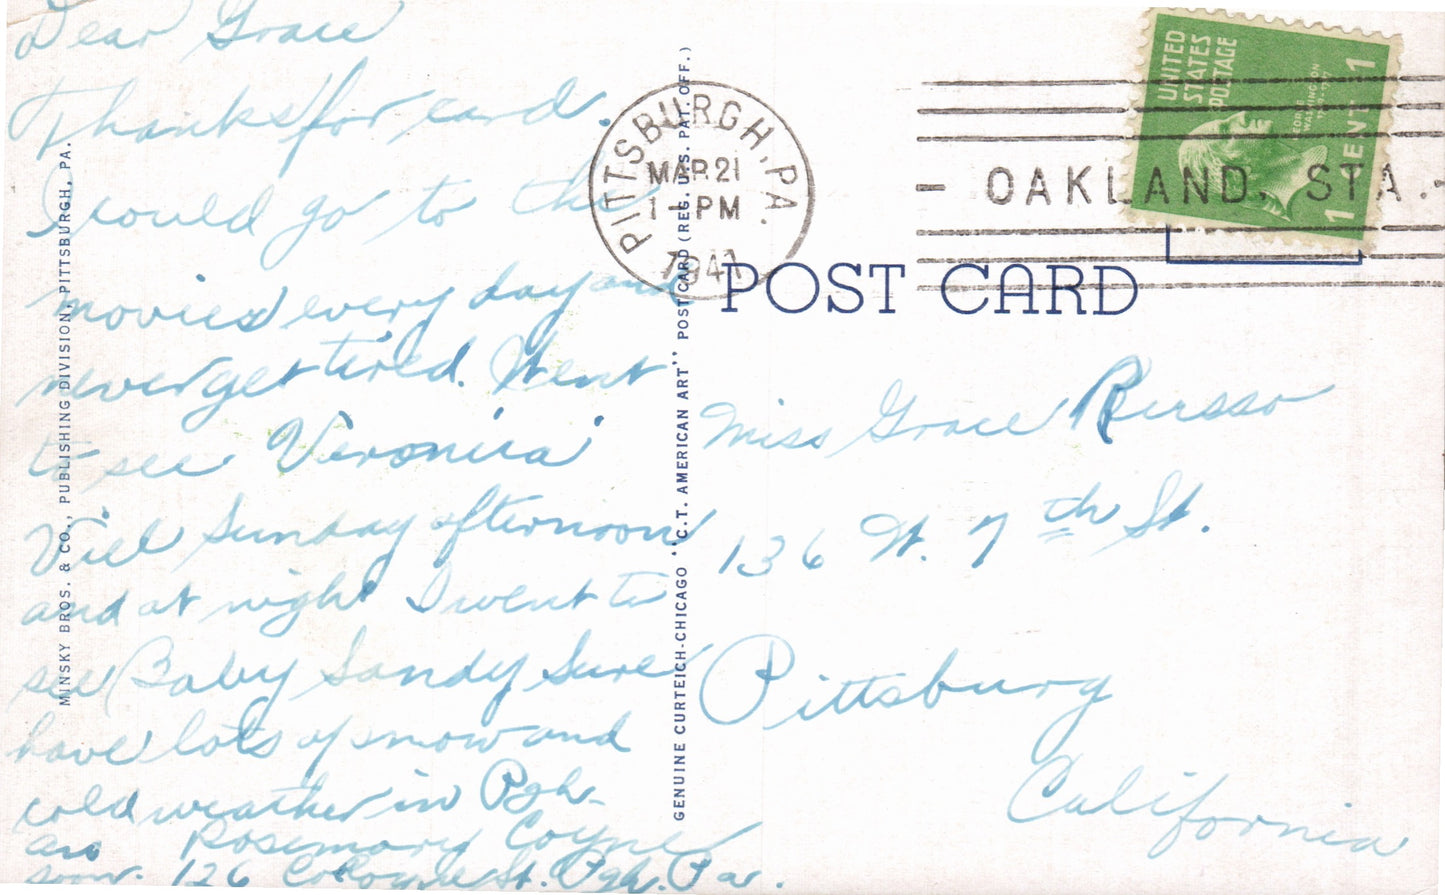 Dear Grace
Thanks for card.
I could go to the
movies every day and
never get tired. Went
to see Veronica
Sunday afternoon
and at night I went to
see Baby Sandy Sure
have lots of snow and
cold weather in Pgh.
Ans Rosemary Coyne
soon. 126 Cologne St. Pgh. Pa.
MINSKY BROS. & CO., PUBLISHING DIVISION, PITTSBURGH, PA.
GENUINE CURTEICH-CHICAGO "C.T. AMERICAN ART" POST CARD (REG. U.S. PAT. OFF.)
PITTSBURGH, PA.
MAR 21
1-PM
1941
- OAKLAND, STA. -
UNITED
STATES
POSTAGE
GEORGE
WASHINGTON
1 CENT 1
POST CARD
Miss Grace Russo
136 W. 7th St.
Pittsburg
California